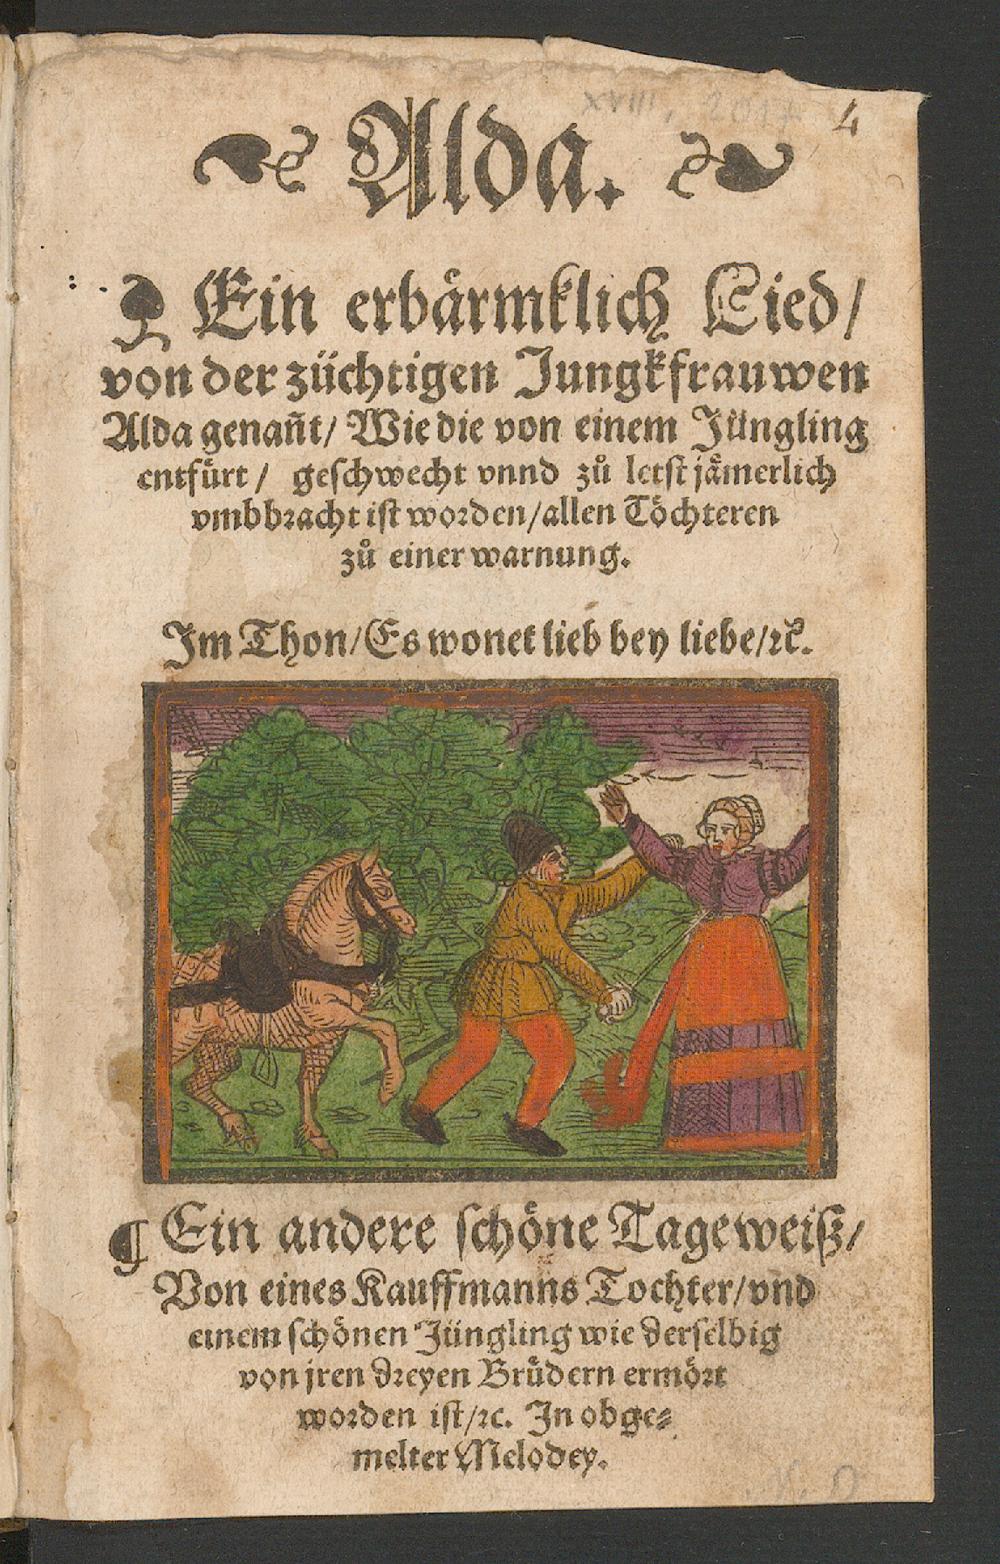 XVIII, 2017 4
Alda.
Ein erbärmklich Lied/
von der züchtigen Jungkfrauwen
Alda genañt/ Wie die von einem Jüngling
entfürt/ geschwecht vnnd zů letst jämerlich
vmbbracht ist worden/allen Töchteren
zů einer warnung.
Im Thon/Es wonet lieb bey liebe/ꝛc̃.
¶ Ein andere schöne Tageweiß/
Von eines Kauffmanns Tochter/vnd
einem schönen Jüngling wie derselbig
von jren dreyen Brüdern ermört
worden ist/ꝛc. In obge⸗
melter Melodey.